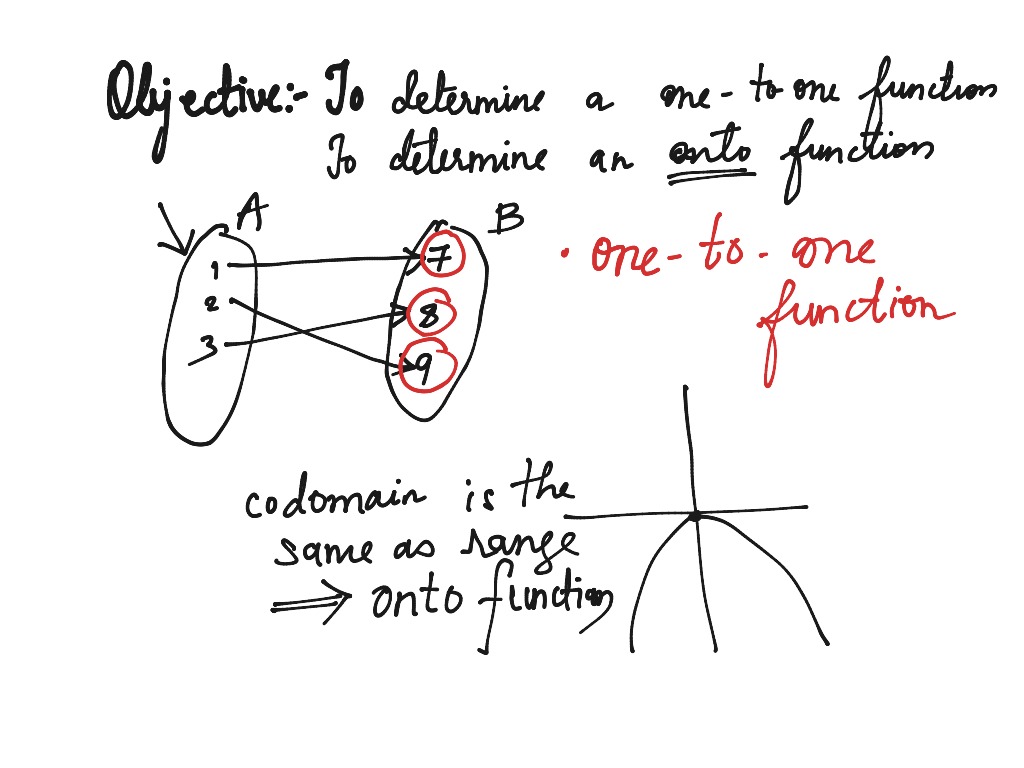 Objective:- To determine a one-to-one function
To determine an onto function
A
B
1
7
2
8
3
9
• one-to-one
function
codomain is the
same as range
⟹ onto function